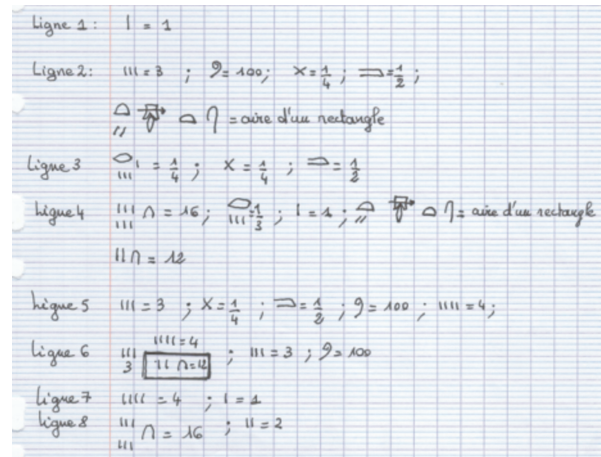 Ligne 1 : | = 1
Ligne 2 : ||| = 3 ; 𓍢 = 100 ; × = 1/4 ; 𓐛 = 1/2 ;
= aire d'un rectangle
Ligne 3 = 1/4 ; × = 1/4 ; 𓐛 = 1/2
Ligne 4 ||| ||| ∩ = 16 ; 𓂋 ||| = 1/3 ; | = 1 ; = aire d'un rectangle
|| ∩ = 12
Ligne 5 ||| = 3 ; × = 1/4 ; 𓐛 = 1/2 ; 𓍢 = 100 ; |||| = 4 ;
Ligne 6 ||| 3 |||| = 4 || ∩ = 12 ; ||| = 3 ; 𓍢 = 100
Ligne 7 |||| = 4 ; | = 1
Ligne 8 ||| ||| ∩ = 16 ; || = 2